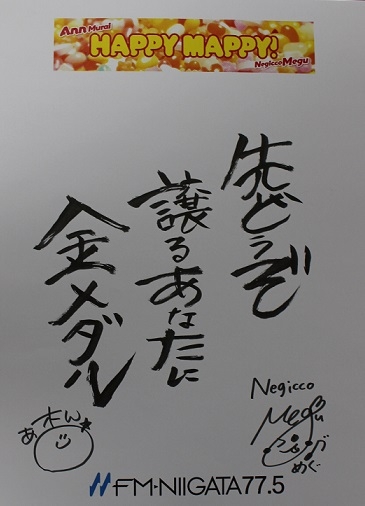 Ann Murai
HAPPY MAPPY!
Negicco Megu
先どうぞ
譲るあなたに
金メダル
Negicco
Megu
めぐ
あん
FM-NIIGATA 77.5